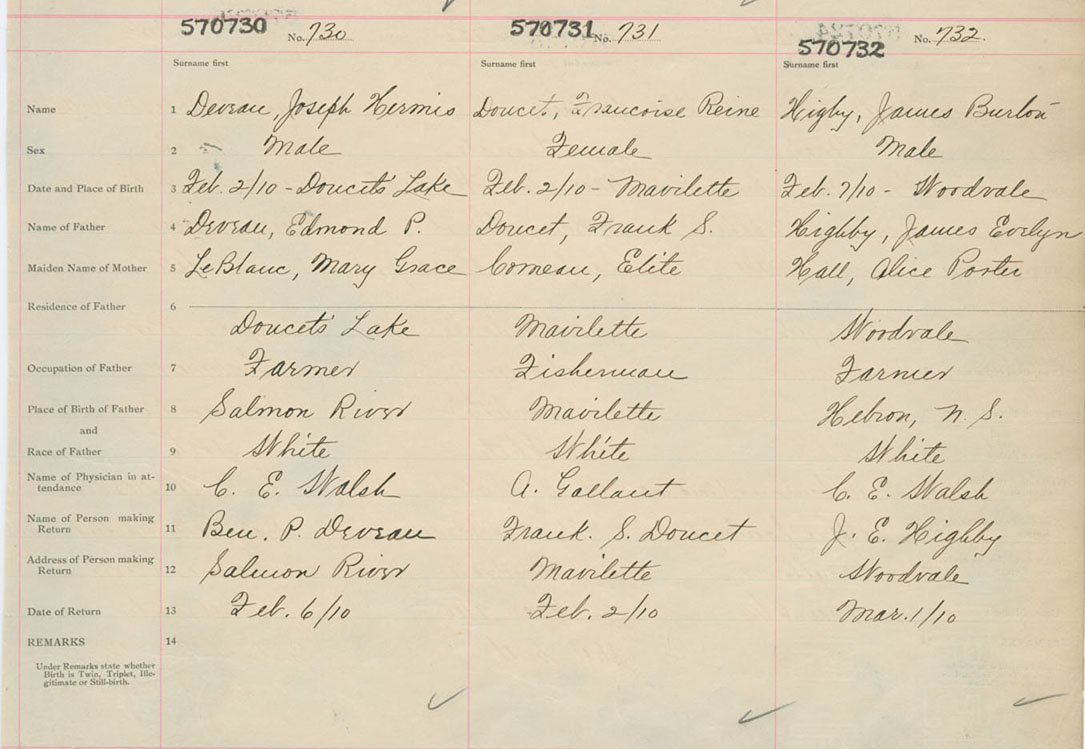 570730 No. 730 570731 No. 731 570732 No. 732.
Surname first Surname first Surname first
Name 1 Deveau, Joseph Hermis Doucet, Francoise Reine Higby, James Burton
Sex 2 Male Female Male
Date and Place of Birth 3 Feb. 2/10 - Doucets Lake Feb. 2/10 - Mavilette Feb. 7/10 - Woodvale
Name of Father 4 Deveau, Edmond P. Doucet, Frank S. Highby, James Evelyn
Maiden Name of Mother 5 LeBlanc, Mary Grace Comeau, Elite Hall, Alice Porter
Residence of Father 6
Doucets Lake Mavilette Woodvale
Occupation of Father 7 Farmer Fisherman Farmer
Place of Birth of Father 8 Salmon River Mavilette Hebron, N. S.
and
Race of Father 9 White White White
Name of Physician in at-
tendance 10 C. E. Walsh A. Gallant C. E. Walsh
Name of Person making
Return 11 Ben. P. Deveau Frank. S. Doucet J. E. Highby
Address of Person making
Return 12 Salmon River Mavilette Woodvale
Date of Return 13 Feb. 6/10 Feb. 2/10 Mar. 1/10
REMARKS 14
Under Remarks state whether
Birth is Twin, Triplet, Ille-
gitimate or Still-birth.